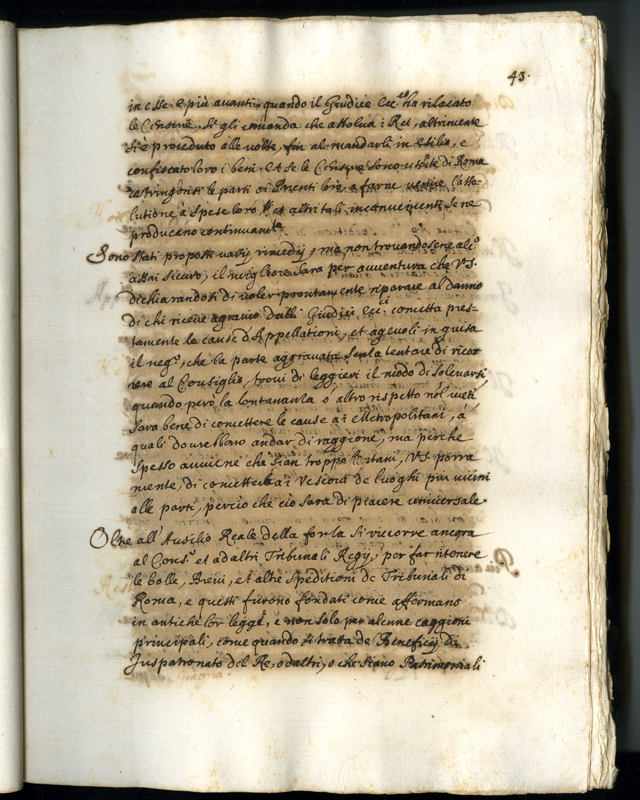 43.
in esse. e più avanti quando il Giudice Ecc.co ha rilasato
le Censure, Si gli comanda che assolua i Rei, altrimente
si è proceduto alle volte, fin al mandarli in esilio, e
confiscato loro i beni. et se le Censure sono uscite di Roma
astringonsi le parti o i Parenti loro, e farne venire l'asso-
lutione à spese loro, et altri tali inconuenienti se ne
producano continuam.te
Sono stati proposti varij rimedij, ma non trouandosene alc.o
assai sicuro, il migliore sara per auuentura che V.S.
dichiarandosi di voler prontamente riparare al danno
di chi riceue agrauio dalli Giudici Ecc.ci cometta pres-
tamente le cause d'Appellationi, et ageuoli in guisa
il neg.o, che la parte aggrauata senza tentare di ricor
rere al Consiglio, troui di leggieri il modo di soleuarsi
quando però la lontananza o altro rispetto nol vieti
sara bene di comettere le cause à i Metropolitani, à
quali dourebbono andar di raggione, ma perche
spesso auuiene che sian troppo lontani, V.S. porrà
mente, di cometterla i Vescoui de luoghi più vicini
alle parti, percio che ciò sarà di piacere vniuersale.
Oltre all'Ausilio Reale della forza si ricorre ancora
al Cons.o et ad altri Tribunali Regij, per far ritenere
le bolle, Breui, et altre speditioni de Tribunali di
Roma, e questi furono fondati come affermano
in antiche lor legge, e non solo per alcune caggioni
principali, come quando si tratta de Beneficij di
Juspatronato del Re, o d'altri, o che siano Patrimoniali